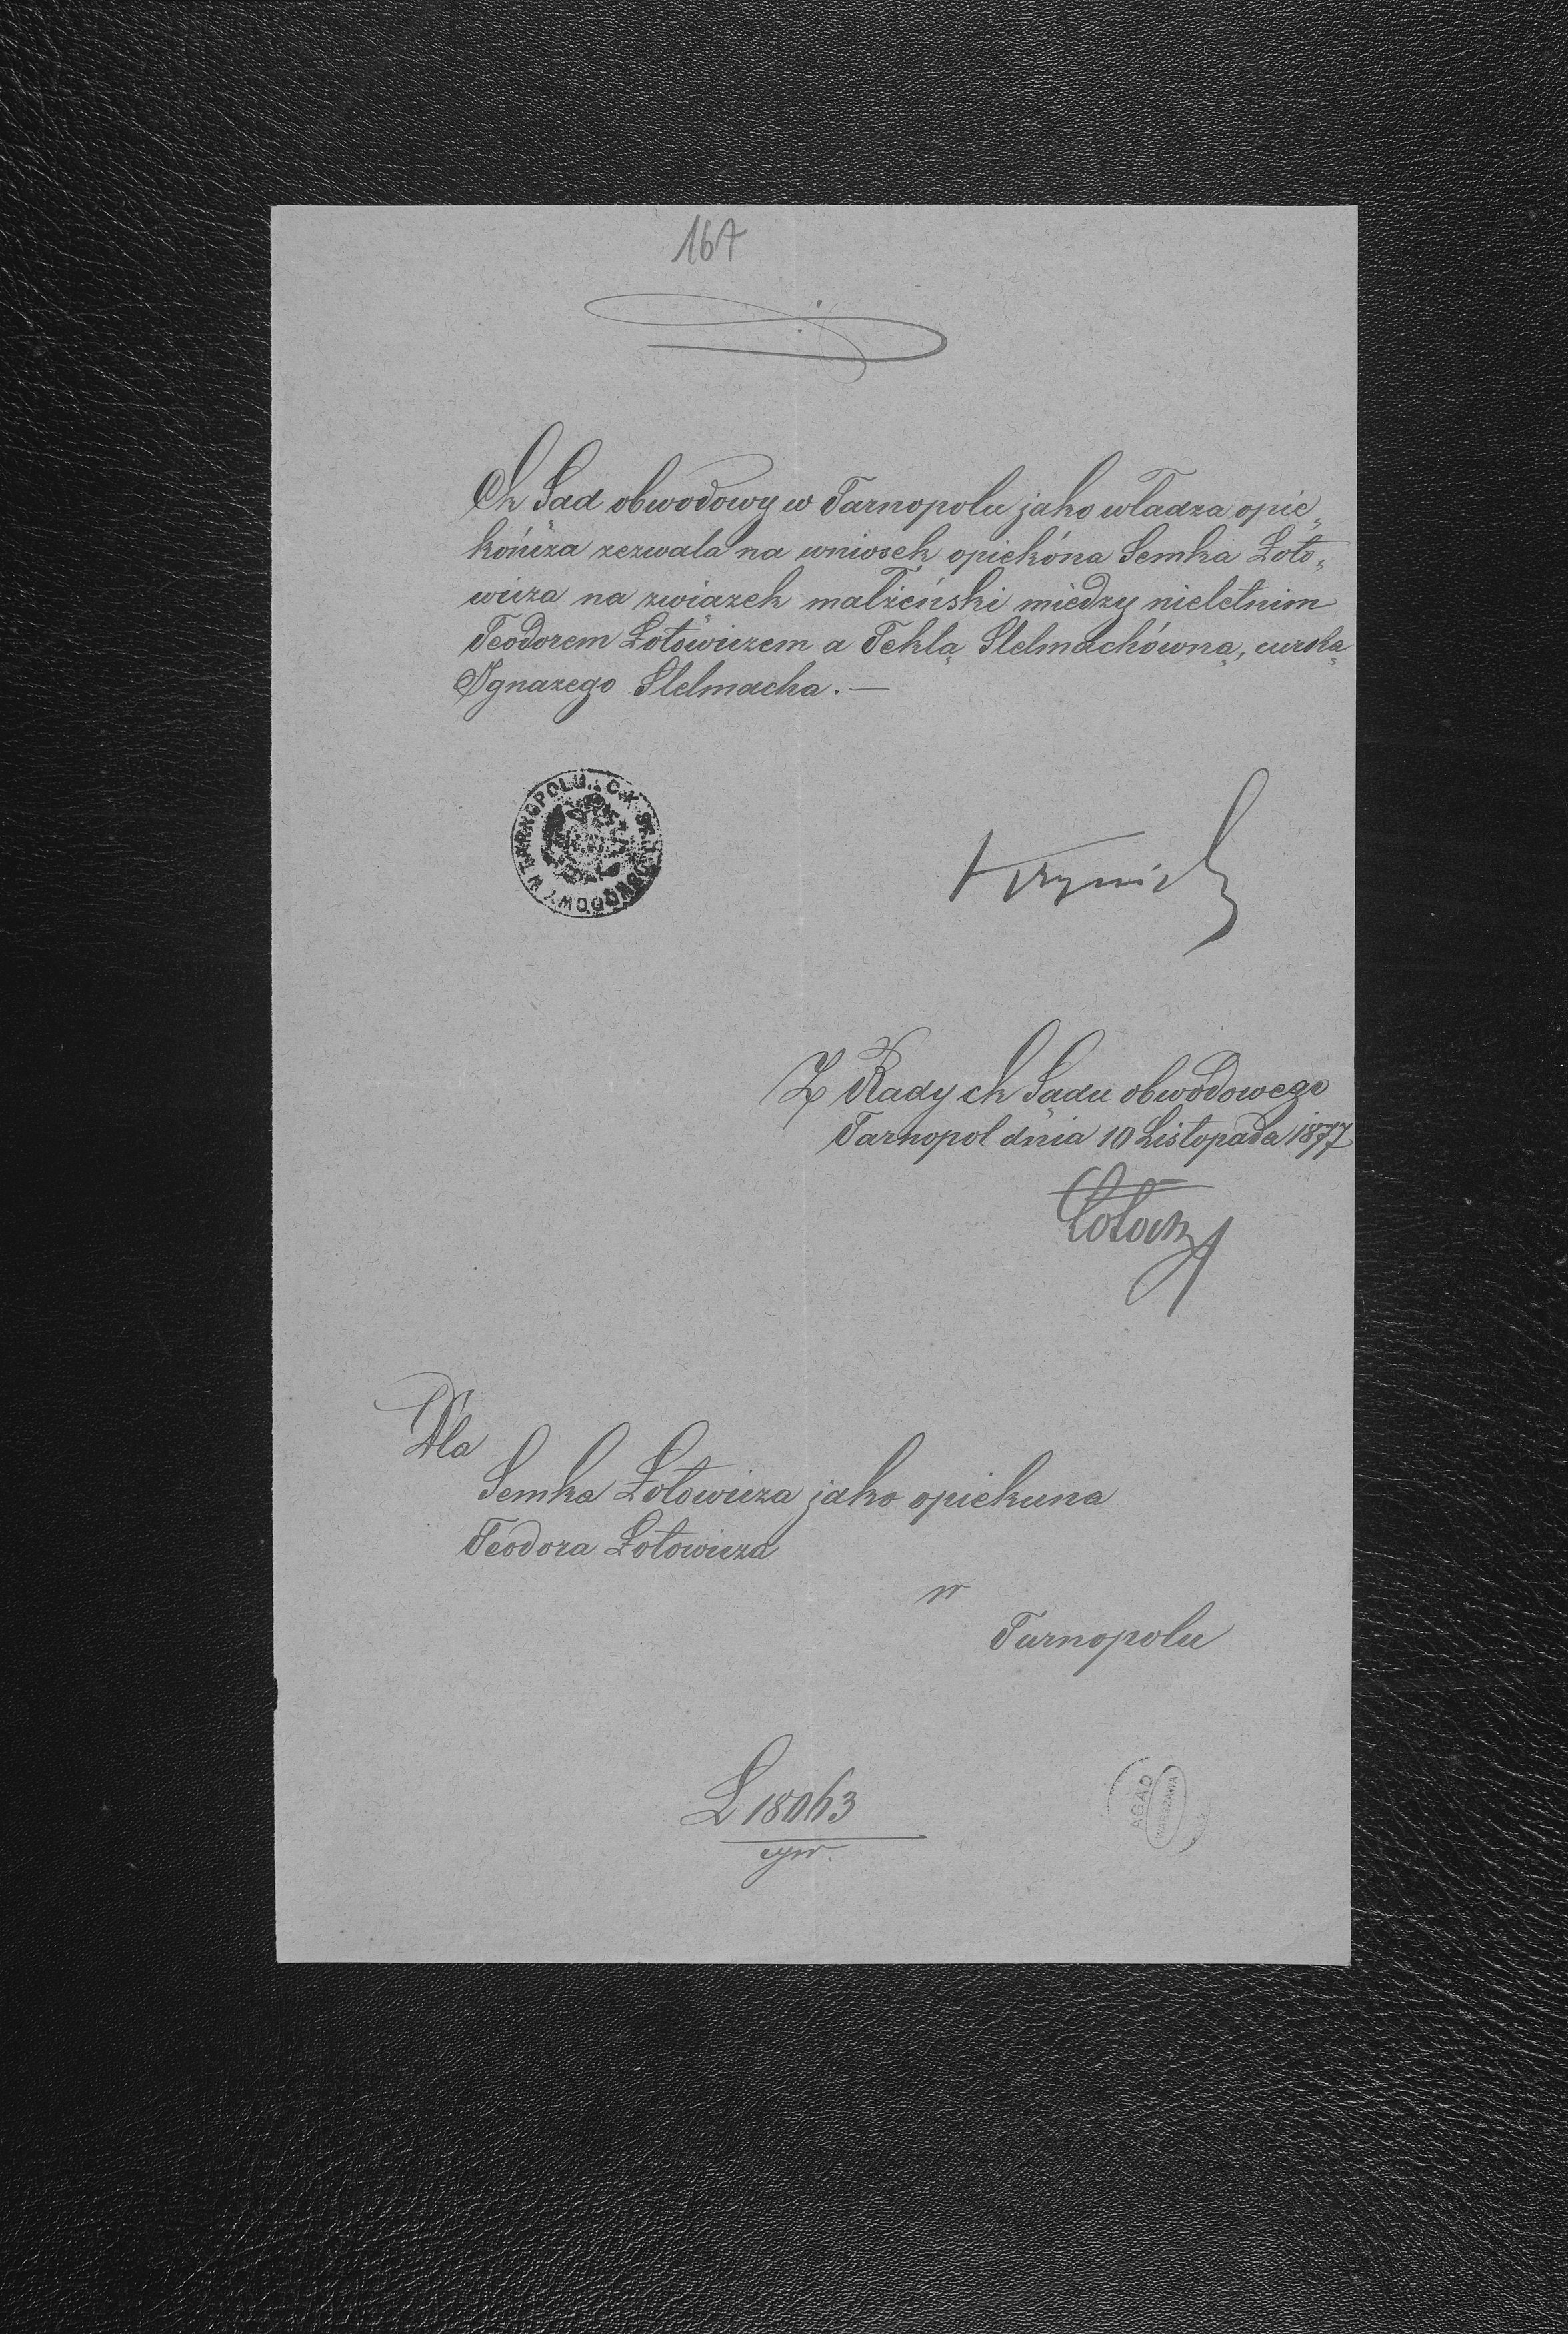 167
Ck Sąd obwodowy w Tarnopolu jako władza opie„
kóńcza zezwala na wniosek opiekóna Semka Łoto„
wicza na związek małżeński między nieletnim
Teodorem Łotowiczem a Teklą Stelmachówną, curską
Ignacego Stelmacha. —
C. K. SĄD OBWODOWY W TARNOPOLU.
Z Rady ck Sądu obwodowego
Tarnopol dnia 10 Listopada 1877
Dla
Semka Łotowicza jako opiekuna
Teodora Łotowicza
w
Tarnopolu
L 18063
cyw.
AGAD
WARSZAWA